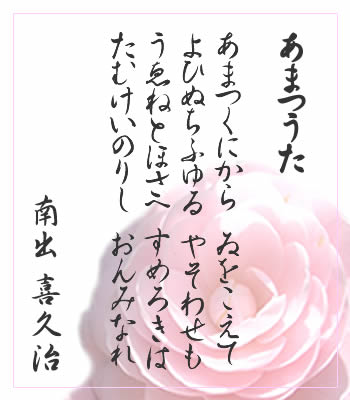 あまつうた
あまつくにから　ゐをこえて
よひぬちふゆる　やそわせも
うゑねとほさへ　すめろきは
たむけいのりし　おんみなれ
南出 喜久治